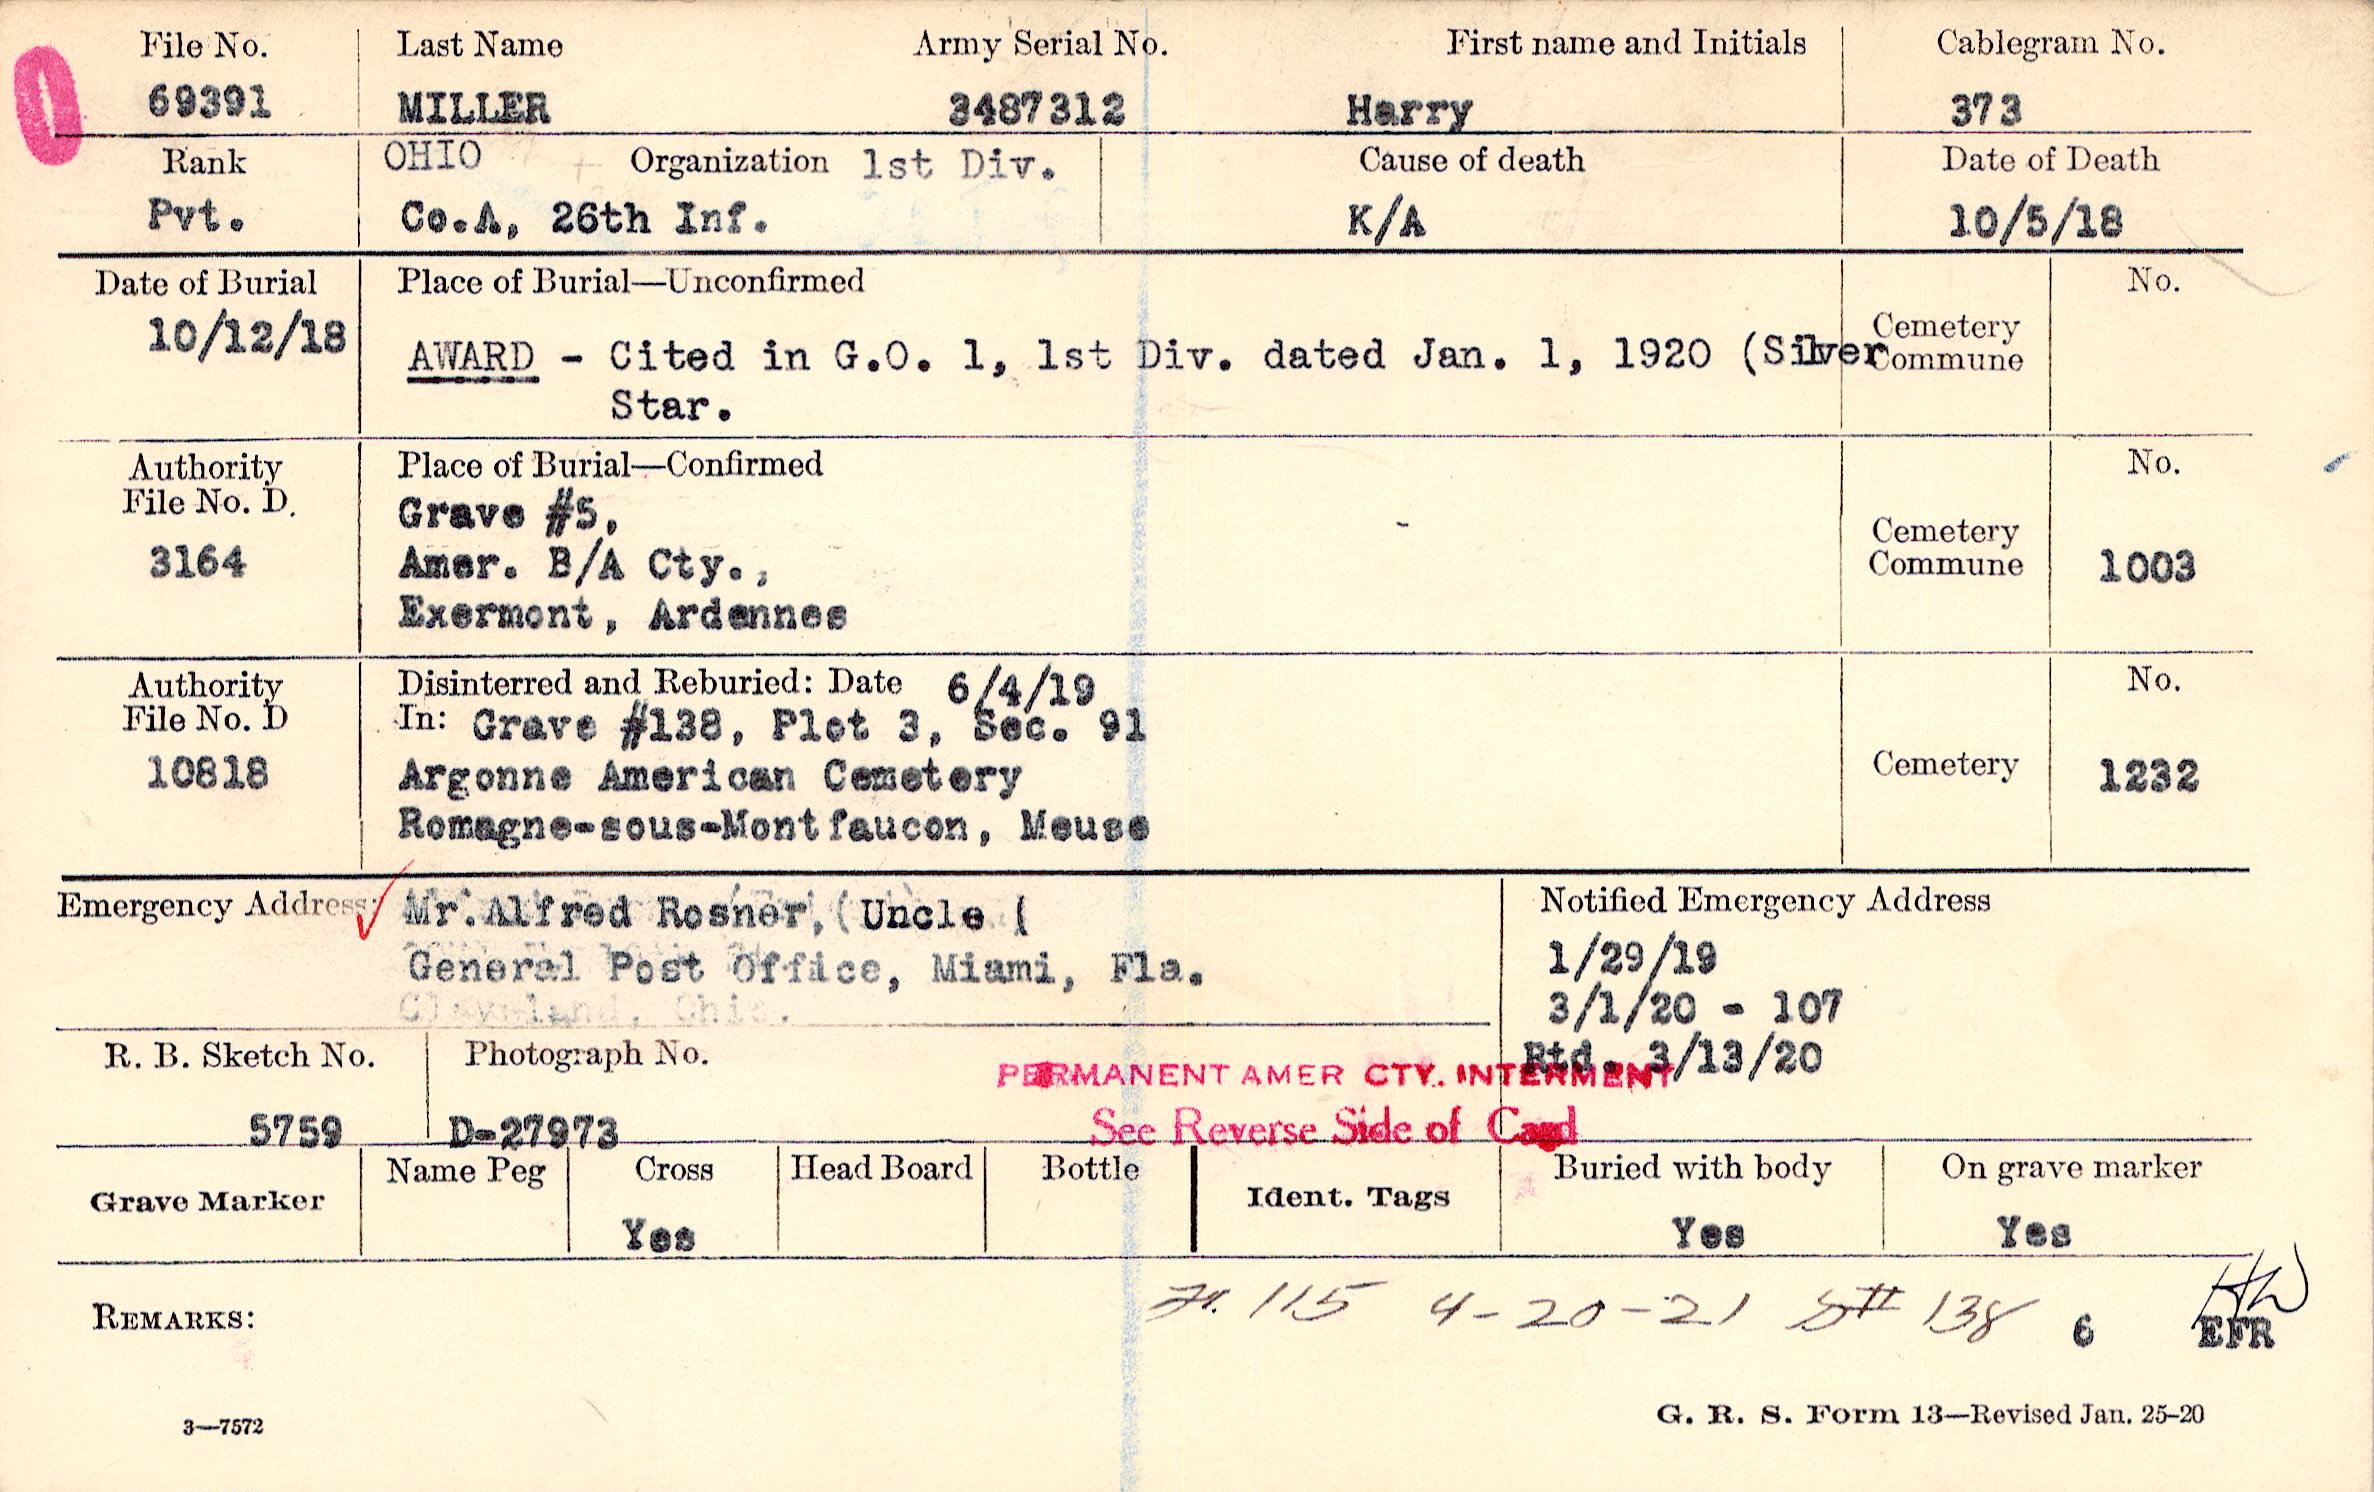 File No. Last Name Army Serial No. First name and Initials Cablegram No.
69391 MILLER 3487312 Harry 373
Rank OHIO Organization 1st Div. Cause of death Date of Death
Pvt. Co.A, 26th Inf. K/A 10/5/18
Date of Burial Place of Burial—Unconfirmed No.
10/12/18 Cemetery
AWARD - Cited in G.O. 1, 1st Div. dated Jan. 1, 1920 (Silver Commune
Star.
Authority Place of Burial—Confirmed No.
File No. D. Grave #5,
Cemetery
3164 Amer. B/A Cty., Commune 1003
Exermont, Ardennes
Authority Disinterred and Reburied: Date 6/4/19 No.
File No. D In: Grave #138, Plot 3, Sec. 91
10818 Argonne American Cemetery Cemetery 1232
Romagne-sous-Montfaucon, Meuse
Emergency Address: Mr. Alfred Rosner, (Uncle ( Notified Emergency Address
General Post Office, Miami, Fla. 1/29/19
Cleveland, Ohio. 3/1/20 - 107
R. B. Sketch No. Photograph No. Rtd. 3/13/20
PERMANENT AMER CTY. INTERMENT
5759 D-27973 See Reverse Side of Card
Grave Marker Name Peg Cross Head Board Bottle Ident. Tags Buried with body On grave marker
Yes Yes Yes
REMARKS: 115 4-20-21 138 6 HW
EFR
3—7572 G. R. S. Form 13—Revised Jan. 25-20